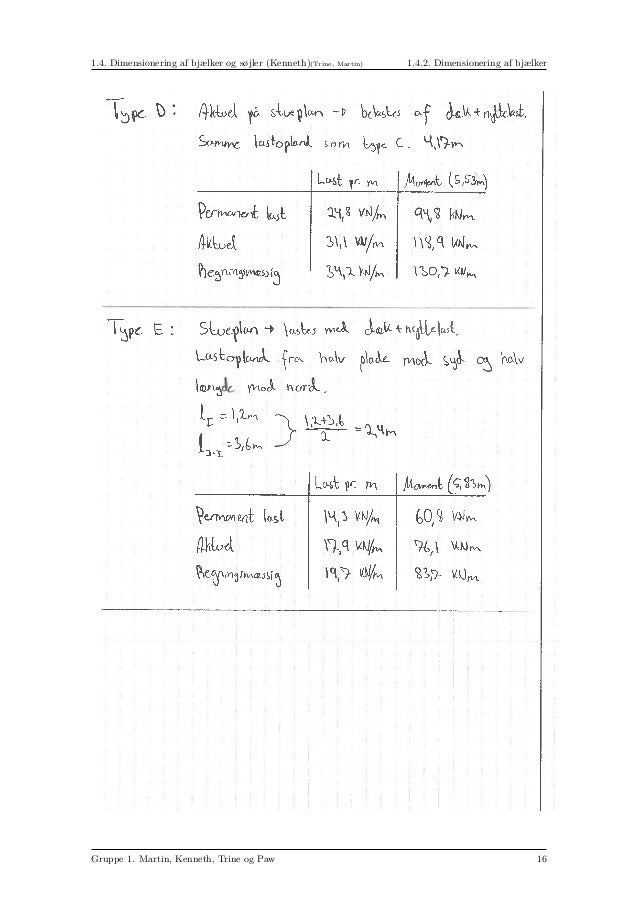 1.4. Dimensionering af bjælker og søjler (Kenneth)(Trine, Martin) 1.4.2. Dimensionering af bjælker
Type D: Aktuel på stueplan → belastes af dæk+nyttelast.
Samme lastopland som type C. 4,17m
Last pr. m Moment (5,53m)
Permanent last 24,8 kN/m 94,8 kNm
Aktuel 31,1 kN/m 118,9 kNm
Regningsmæssig 34,2 kN/m 130,7 kNm
Type E: Stueplan → lastes med dæk+nyttelast.
Lastopland fra halv plade mod syd og halv
længde mod nord.
l_I = 1,2m } (1,2+3,6)/2 = 2,4m
= 3,6m
Last pr. m Moment (5,83m)
Permanent last 14,3 kN/m 60,8 kNm
Aktuel 17,9 kN/m 76,1 kNm
Regningsmæssig 19,7 kN/m 83,7 kNm
Gruppe 1. Martin, Kenneth, Trine og Paw 16